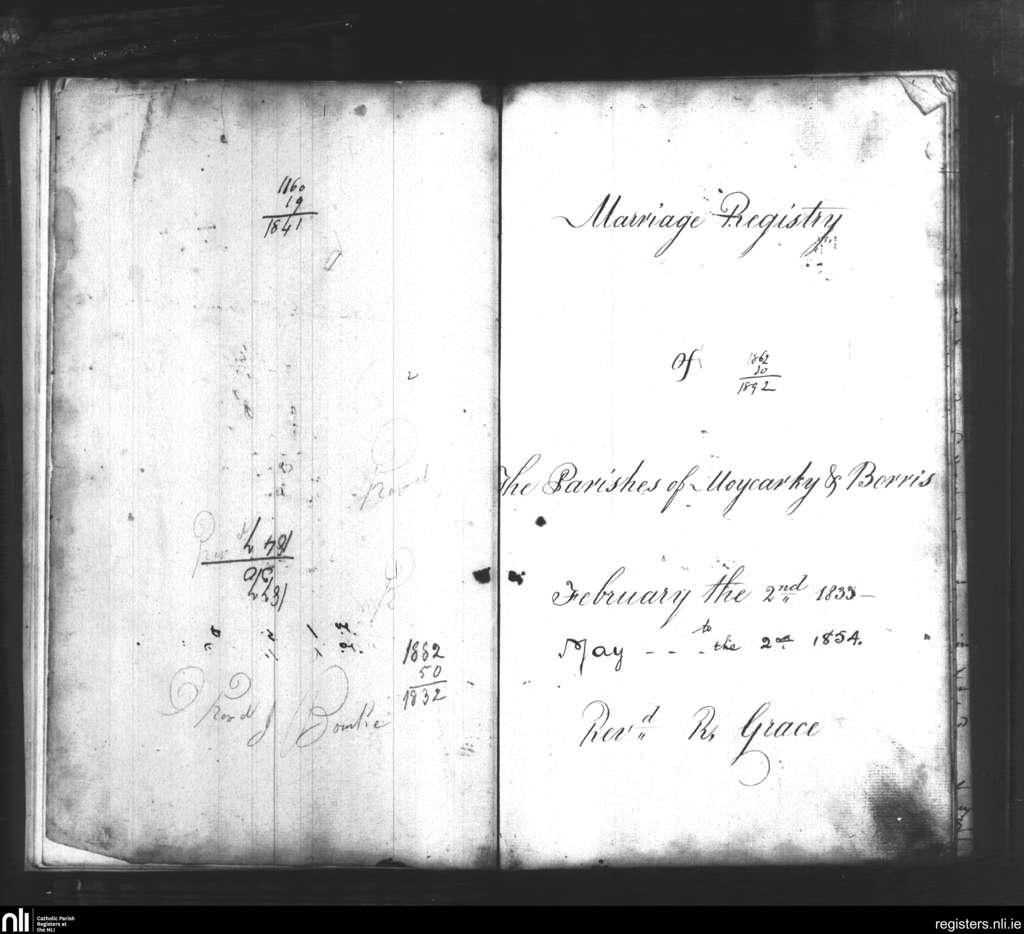 1860
19
1841
1847
1882
50
1832
Revd J Bourke
Marriage Registry
of
1862
30
1892
The Parishes of Moycarky & Borris
February the 2nd 1833 —
to
May - - - the 2nd 1854.
Revd R. Grace
nli
Catholic Parish
Registers at
the NLI
registers.nli.ie